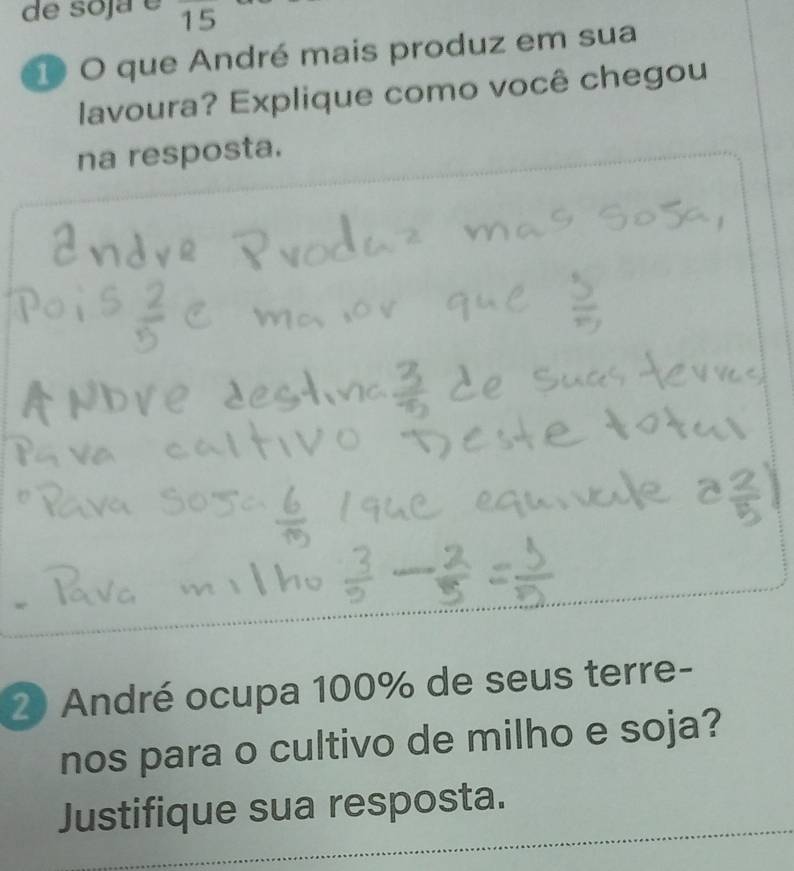 de soja e 15
1 O que André mais produz em sua
lavoura? Explique como você chegou
na resposta.
andre Produz mas sosa,
Pois 2/5 e maior que 1/5
ANDre destina 3/5 de suas terras
Para caltivo Deste total
• Para sosa 6/15 (que equivale a 2/5)
• Para milho 3/5 - 2/5 = 1/5
2 André ocupa 100% de seus terre-
nos para o cultivo de milho e soja?
Justifique sua resposta.